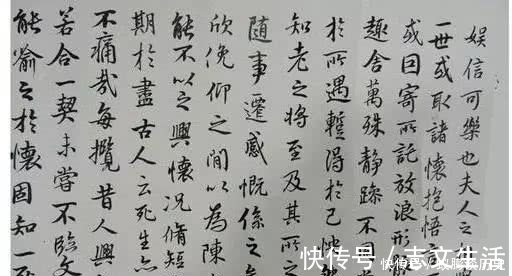 娱信可樂也夫人之
一世或取諸懷抱悟
或因寄所託放浪形
趣舍萬殊静躁不
於所遇輒得於己
知老之將至及其所之
隨事遷感慨係之
欣俛仰之間以為陳
能不以之興懷况脩短
期於盡古人云死生亦
不痛哉每攬昔人興
若合一契未嘗不臨文
能喻之於懷固知一
快传号/志文生活